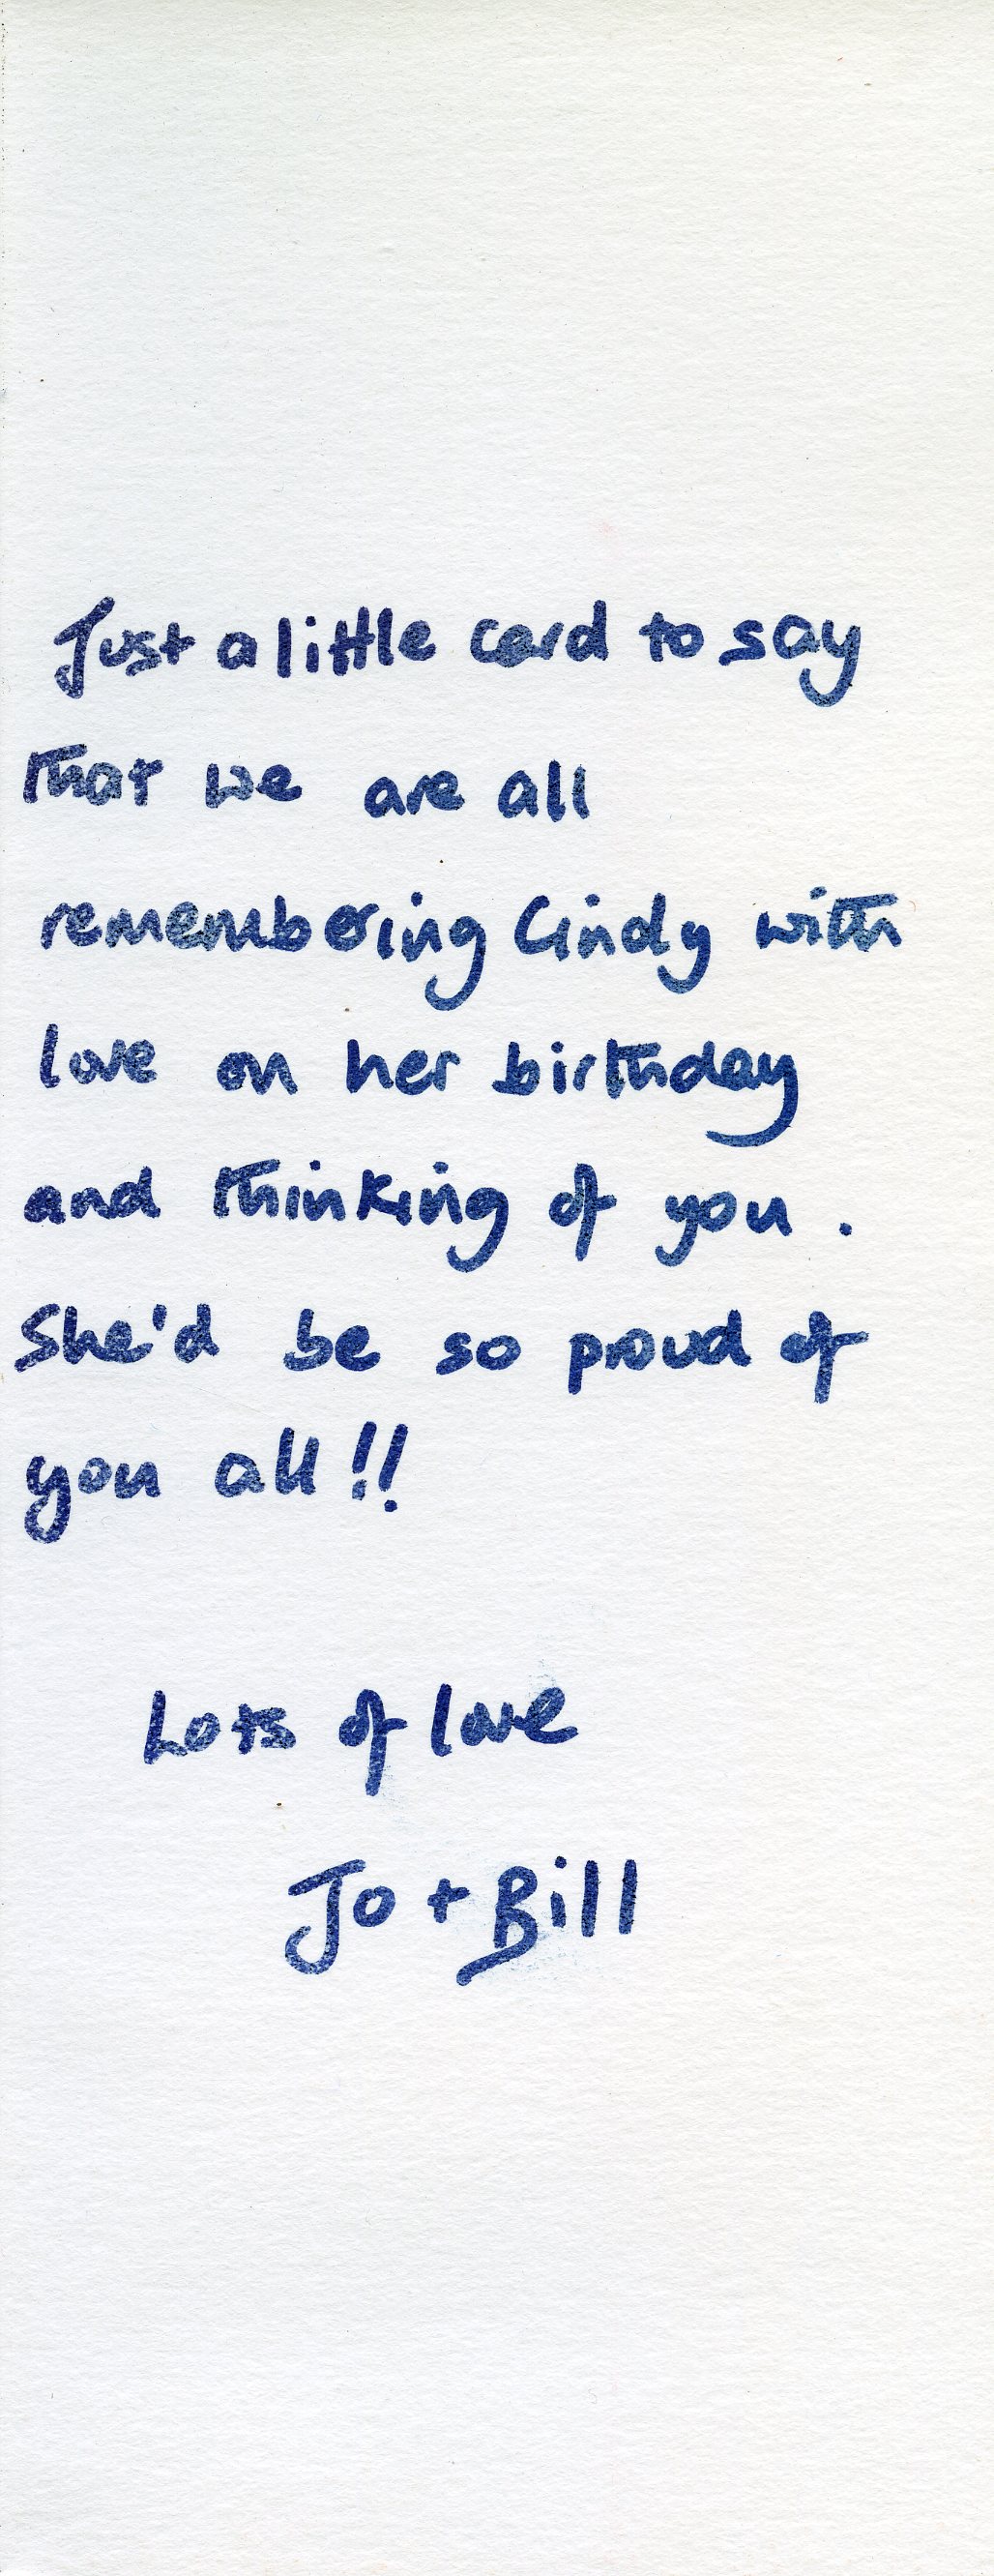 Just a little card to say
that we are all
remembering Cindy with
love on her birthday
and thinking of you.
She'd be so proud of
you all!!
Lots of love
Jo + Bill